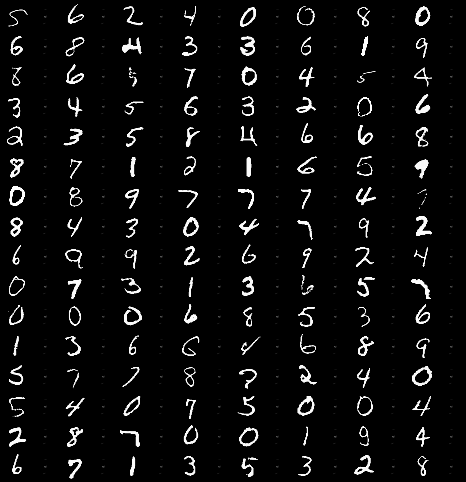 5 6 2 4 0 0 8 0
6 8 4 3 3 6 1 9
8 6 5 7 0 4 5 4
3 4 5 6 3 2 0 6
2 3 5 8 4 6 6 8
8 7 1 2 1 6 5 9
0 8 9 7 7 7 4 7
8 4 3 0 4 7 9 2
6 9 9 2 6 9 2 4
0 7 3 1 3 6 5 7
0 0 0 6 8 5 3 6
1 3 6 6 8 9
5 7 7 8 2 4 0
5 4 0 7 5 0 0 4
2 8 7 0 0 1 9 4
6 7 1 3 5 3 2 8